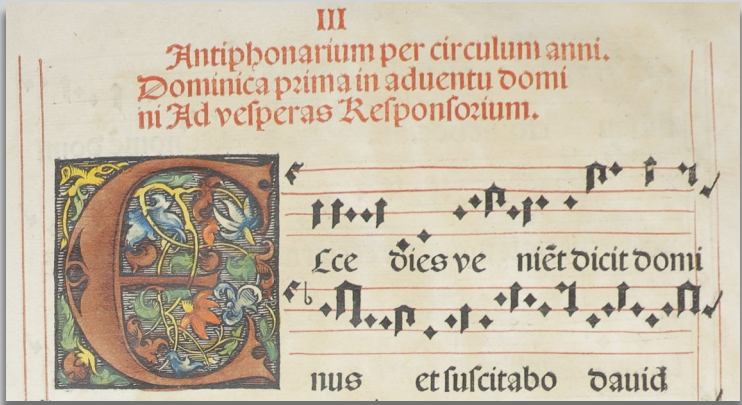 III
Antiphonarium per circulum anni.
Dominica prima in aduentu domi
ni Ad vesperas Responsorium.
Ecce dies ve niēt dicit domi
nus et suscitabo dauid